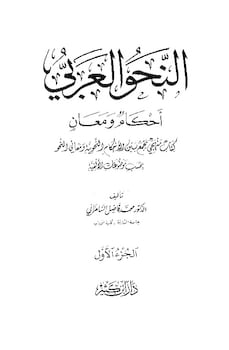 النحو العربي
أحكام ومعان
كتاب منهجي يجمع بين الأحكام النحوية ومعاني النحو
بحسب موضوعات الألفية
تأليف
الدكتور محمد فاضل السامرائي
الجزء الأول
دار ابن كثير